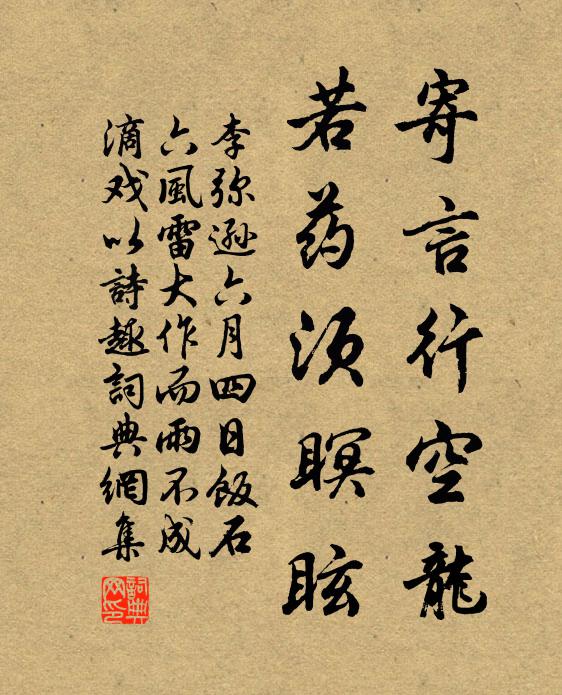 寄言行空龍
若药须瞑眩
李弥遜六月四日飯石
六風雷大作而雨不成
滴戏以詩趣詞典網集
詞典网印